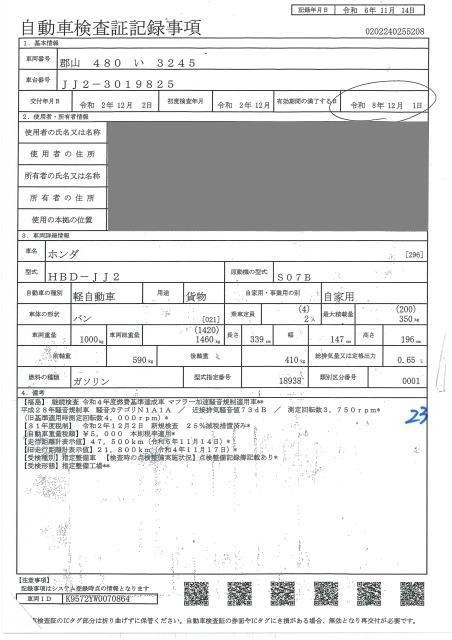 記録年月日 令和 6年11月 14日
自動車検査証記録事項
0202240255208
1．基本情報
車両番号 郡山 480 い 3245
車台番号 JJ2-3019825
交付年月日 令和 2年12月 2日 初度検査年月 令和 2年12月 有効期間の満了する日 令和 8年12月 1日
2．使用者・所有者情報
使用者の氏名又は名称
使用者の住所
所有者の氏名又は名称
所有者の住所
使用の本拠の位置
3．車両詳細情報
車名 ホンダ [296]
型式 HBD-JJ2 原動機の型式 S07B
自動車の種別 軽自動車 用途 貨物 自家用・事業用の別 自家用
車体の形状 バン [021] 乗車定員 (4) 2人 最大積載量 (200) 350kg
車両重量 1000kg 車両総重量 (1420) 1460kg 長さ 339cm 幅 147cm 高さ 196cm
前軸重 590kg 後軸重 410kg 総排気量又は定格出力 0.65 L
燃料の種類 ガソリン 型式指定番号 18938 類別区分番号 0001
4．備考
【福島】 継続検査 令和４年度燃費基準達成車 マフラー加速騒音規制適用車**
平成２８年騒音規制車 騒音カテゴリN1A1A ／ 近接排気騒音値７３dB ／ 測定回転数３，７５０rpm*
（旧基準適用時測定回転数４，０００rpm）*
【３１年度税制】 令和２年１２月２日 新規検査 ２５％減税措置済み*
【自動車重量税額】￥５，０００ 本則税率適用*
【走行距離計表示値】４７，５００km（令和６年１１月１４日）*
【旧走行距離計表示値】２１，８００km（令和４年１１月１７日）*
【受検種別】指定整備車 【検査時の点検整備実施状況】点検整備記録簿記載あり*
【受検形態】指定整備工場**
23
【注意事項】
記録事項はシステム登録時点の情報となります
車両ID K9572YW0070864
検査証のICタグ部分は折り曲げずに保管ください。自動車検査証の券面やICタグにき損がある場合、無効となり再交付が必要です。